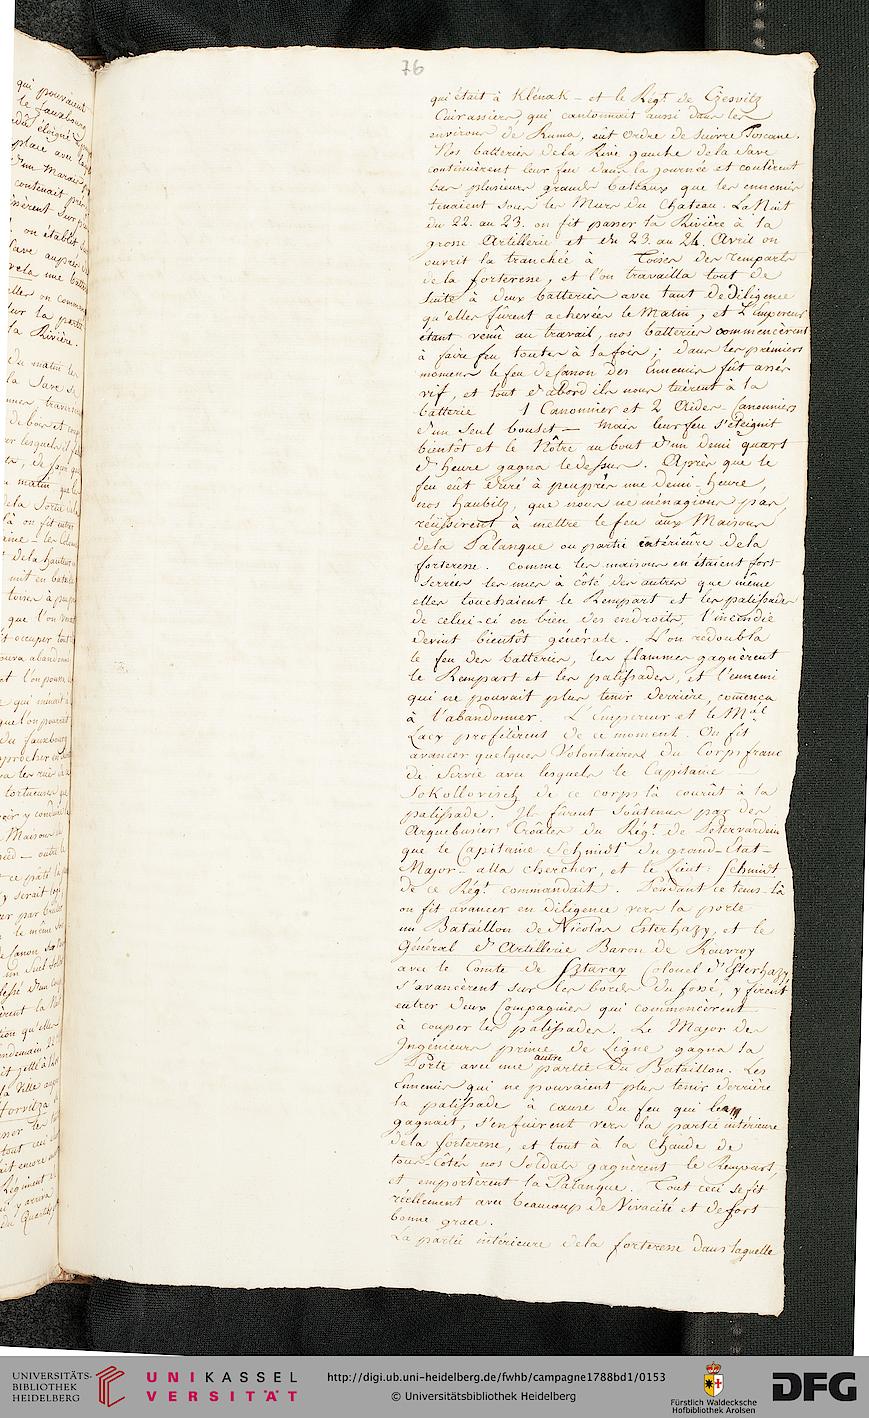 76
qui était à Klénak - et le Régt de Czesvitz
Cuirassiers, qui cantonnoit aussi dans les
environs de Ruma, eût Ordre de suivre Toscane.
Nos batteries de la Rive gauche de la Save
continuèrent leur feu dans la journée et coulèrent
bas plusieurs grands bateaux que les ennemis
tenaient sous les Murs du Chateau. La Nuit
du 22. au 23. on fit passer la Rivière à la
grosse Artillerie et du 23. au 24. Avril on
ouvrit la tranchée à Toises des remparts
de la forteresse, et l'on travailla tout de
suite à deux batteries avec tant de diligence
qu'elles fûrent achevées le Matin, et l'Empereur
étant venû au travail, nos batteries commencèrent
à faire feu toutes à la fois; dans les prémiers
momens le feu de Canon des Ennemis fût assés
vif, et tout d'abord ils nous tuèrent à la
batterie 1 Canonnier et 2 Aides-Canonniers
d'un seul boulet - Mais leur feu s'éteignit
bientôt et le Nôtre au bout d'un demi quart
d'heure gagna le dessus. Après que le
feu eût duré à peuprès une demi-heure,
nos haubitz, que nous ne ménagions pas,
réüssirent à mettre le feu aux Maisons
de la Palanque ou partie extérieure de la
forteresse. Comme les maisons en étaient fort
serrées les unes à côté des autres que même
elles touchaient le Rempart et les palissades
de celui-ci en bien des endroits, l'incendie
devint bientôt générale. L'on redoubla
le feu des batteries, les flammes gagnèrent
le Rempart et les palissades, et l'ennemi
qui ne pouvait plus tenir derrière, comença
à l'abandonner. L'Empereur et le Mal
Lacy profitèrent de ce moment. On fit
avancer quelques Volontaires du Corps franc
de Servie avec lesquels le Capitaine
Sokollovisch de ce corps là courût à la
palissade. Ils fûrent soûtenus par des
Arquebusiers Croâtes du Régt de Petervardein
que le Capitaine Schmidt du grand-Etat-
Major - alla chercher, et le Lieut: Schmidt
de ce Régt commandait. Pendant ce tems-là
on fit avancer en diligence vers la porte
un Bataillon de Nicolas Esterhazy, et le
Général d'Artillerie Baron de Rouvroy
avec le Comte de Sztaray Colonel d'Esterhazy
s'avancèrent sur les bords du fossé, y firent
entrer deux Compagnies qui commencèrent
à couper les palissades. Le Major des
Ingénieurs prince de Ligne gagna la
Porte avec une autre partie du Bataillon. Les
Ennemis qui ne pouvaient plus tenir derrière
la palissade à cause du feu qui les
gagnait, s'enfuirent vers la partie intérieure
de la forteresse, et tout à la Chaude de
tous-côtés nos Soldats gagnèrent le Rempart,
et emportèrent la Palanque. Tout ceci se fit
réellement avec beaucoup de Vivacité et de fort
bonne grace.
La partie intérieure de la forteresse dans laquelle
UNIVERSITÄTS-
BIBLIOTHEK
HEIDELBERG
UNIKASSEL
VERSITÄT
http://digi.ub.uni-heidelberg.de/fwhb/campagne1788bd1/0153
© Universitätsbibliothek Heidelberg
Fürstlich Waldecksche
Hofbibliothek Arolsen
DFG